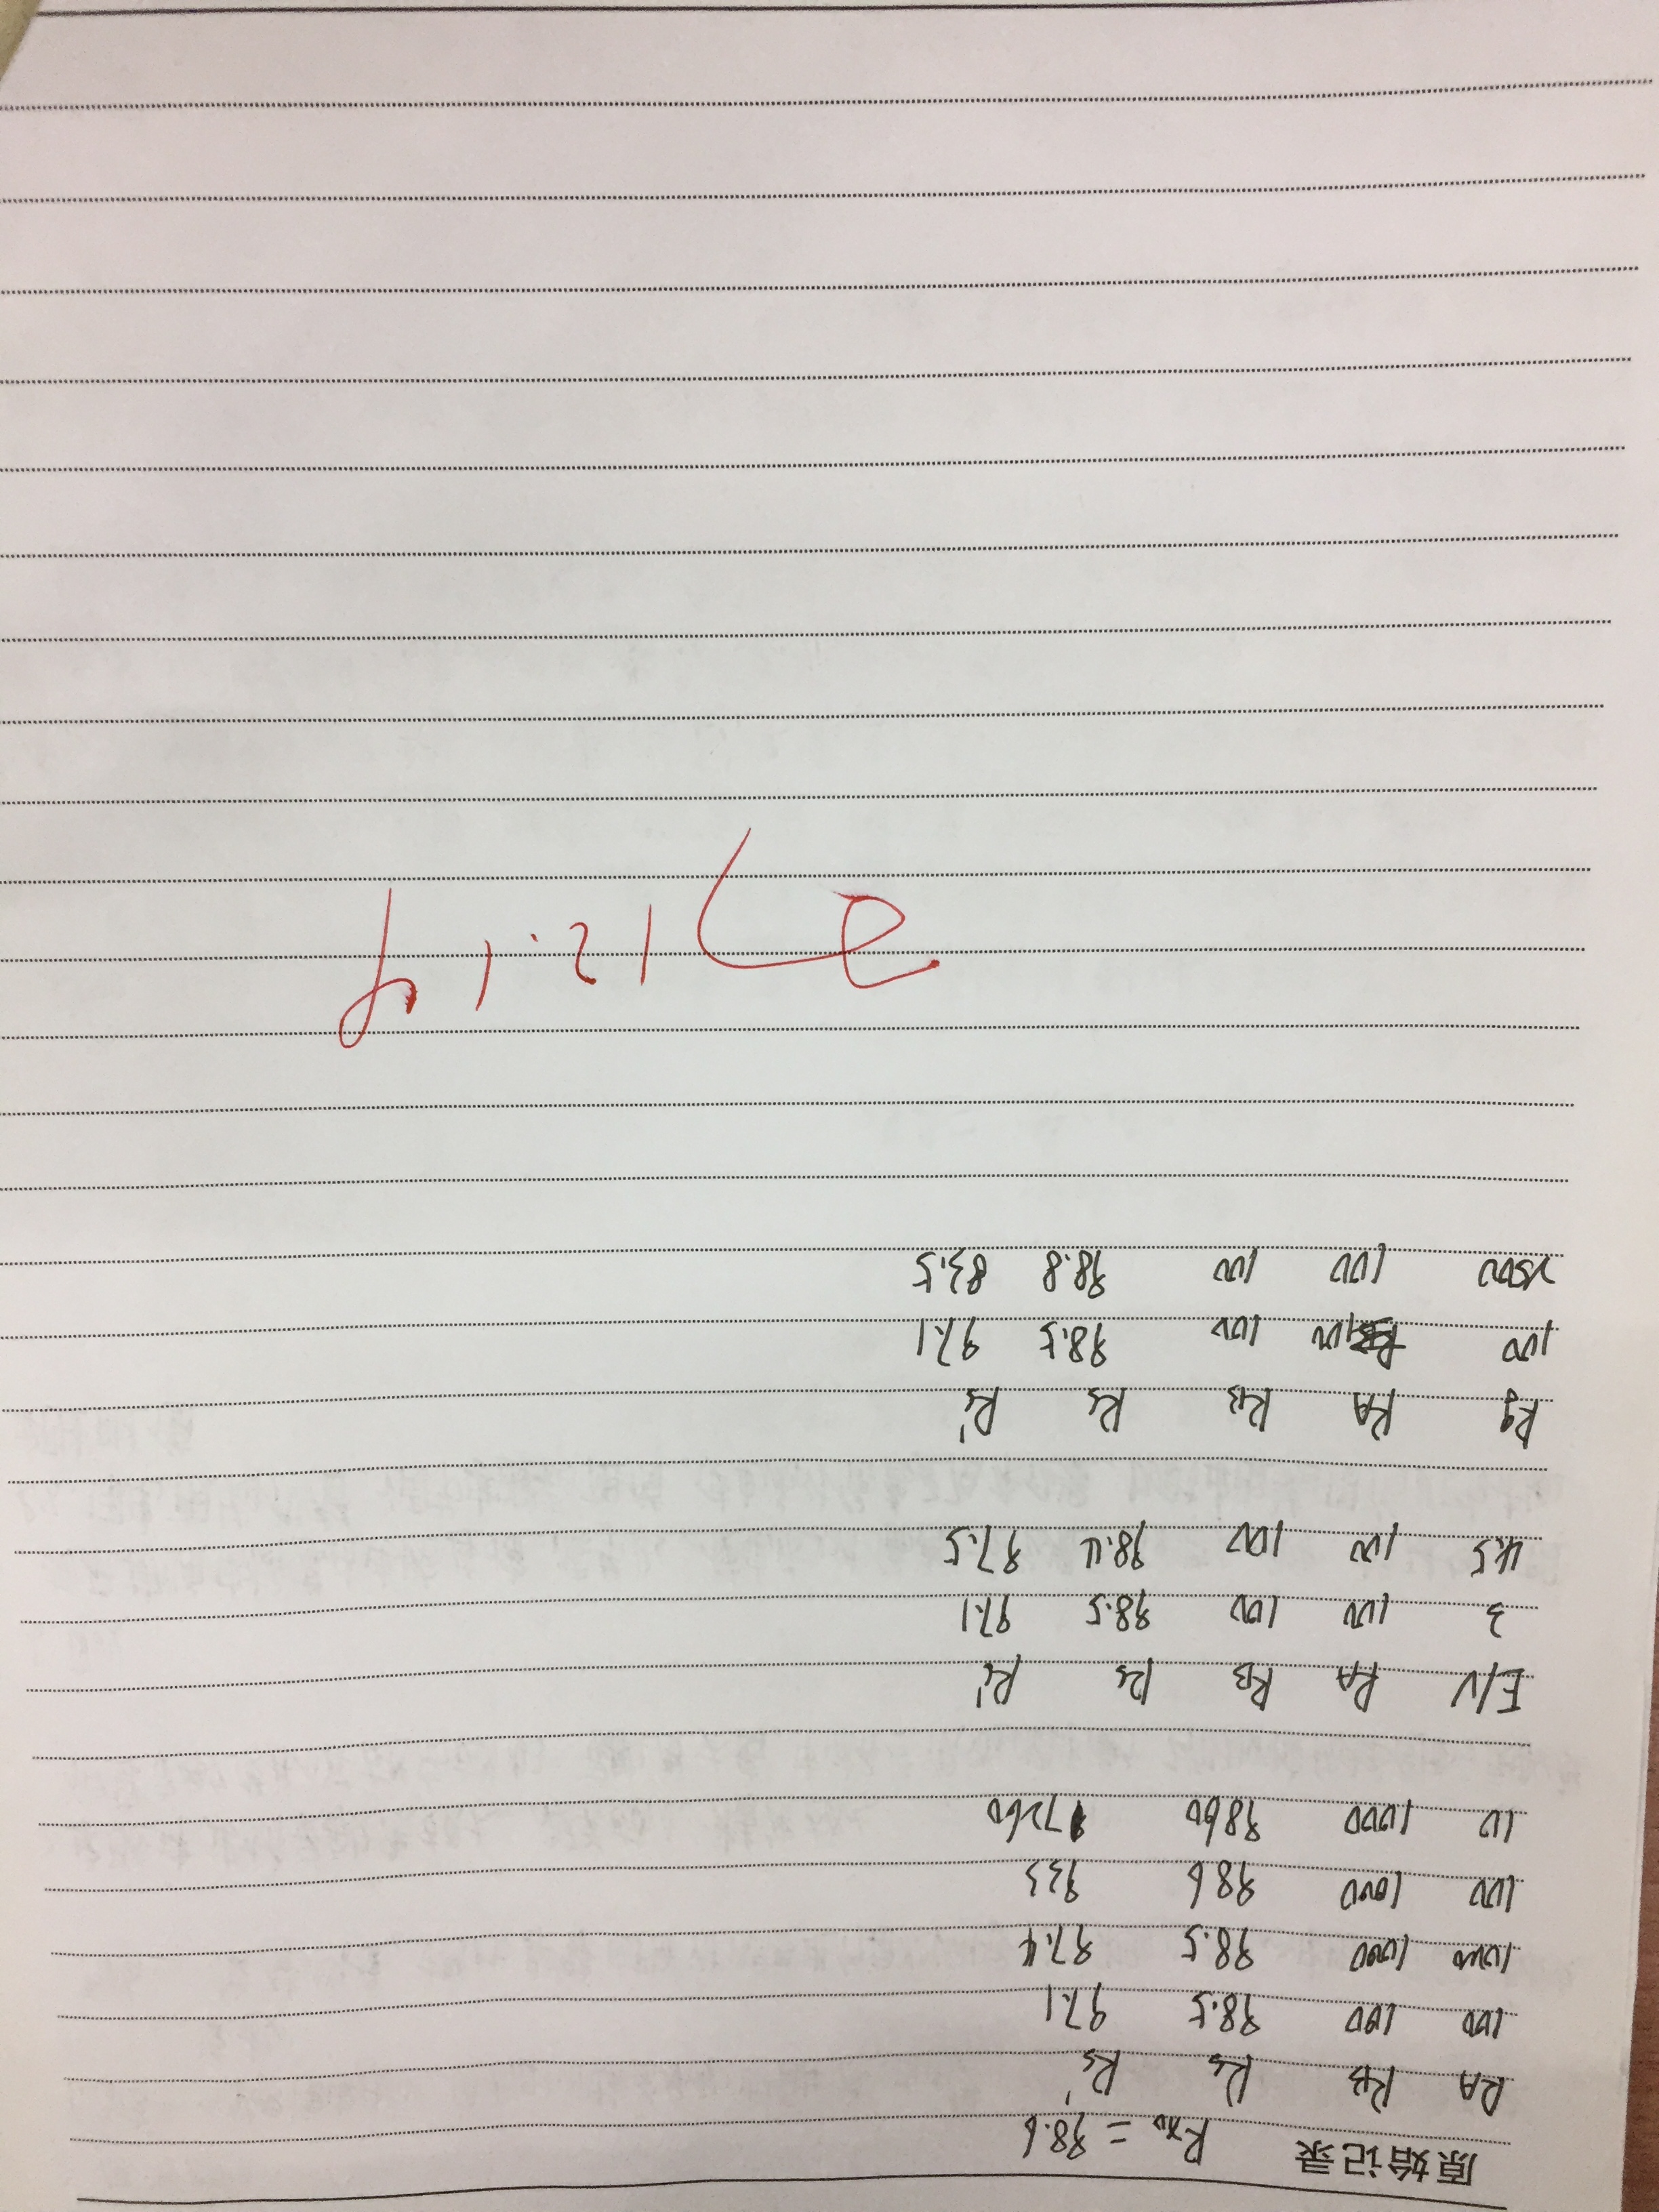 原始记录 Rx0 = 98.6
RA RB Rs Rs'
100 100 98.5 97.1
1000 1000 98.5 97.4
100 1000 986 933
10 1000 9860
E/V RA RB Rs Rs'
3 100 100 98.5 97.1
4.5 100 100 98.4 97.5
Rg RA RB Rs Rs'
100 100 100 98.5 97.1
100 100 98.8 83.5